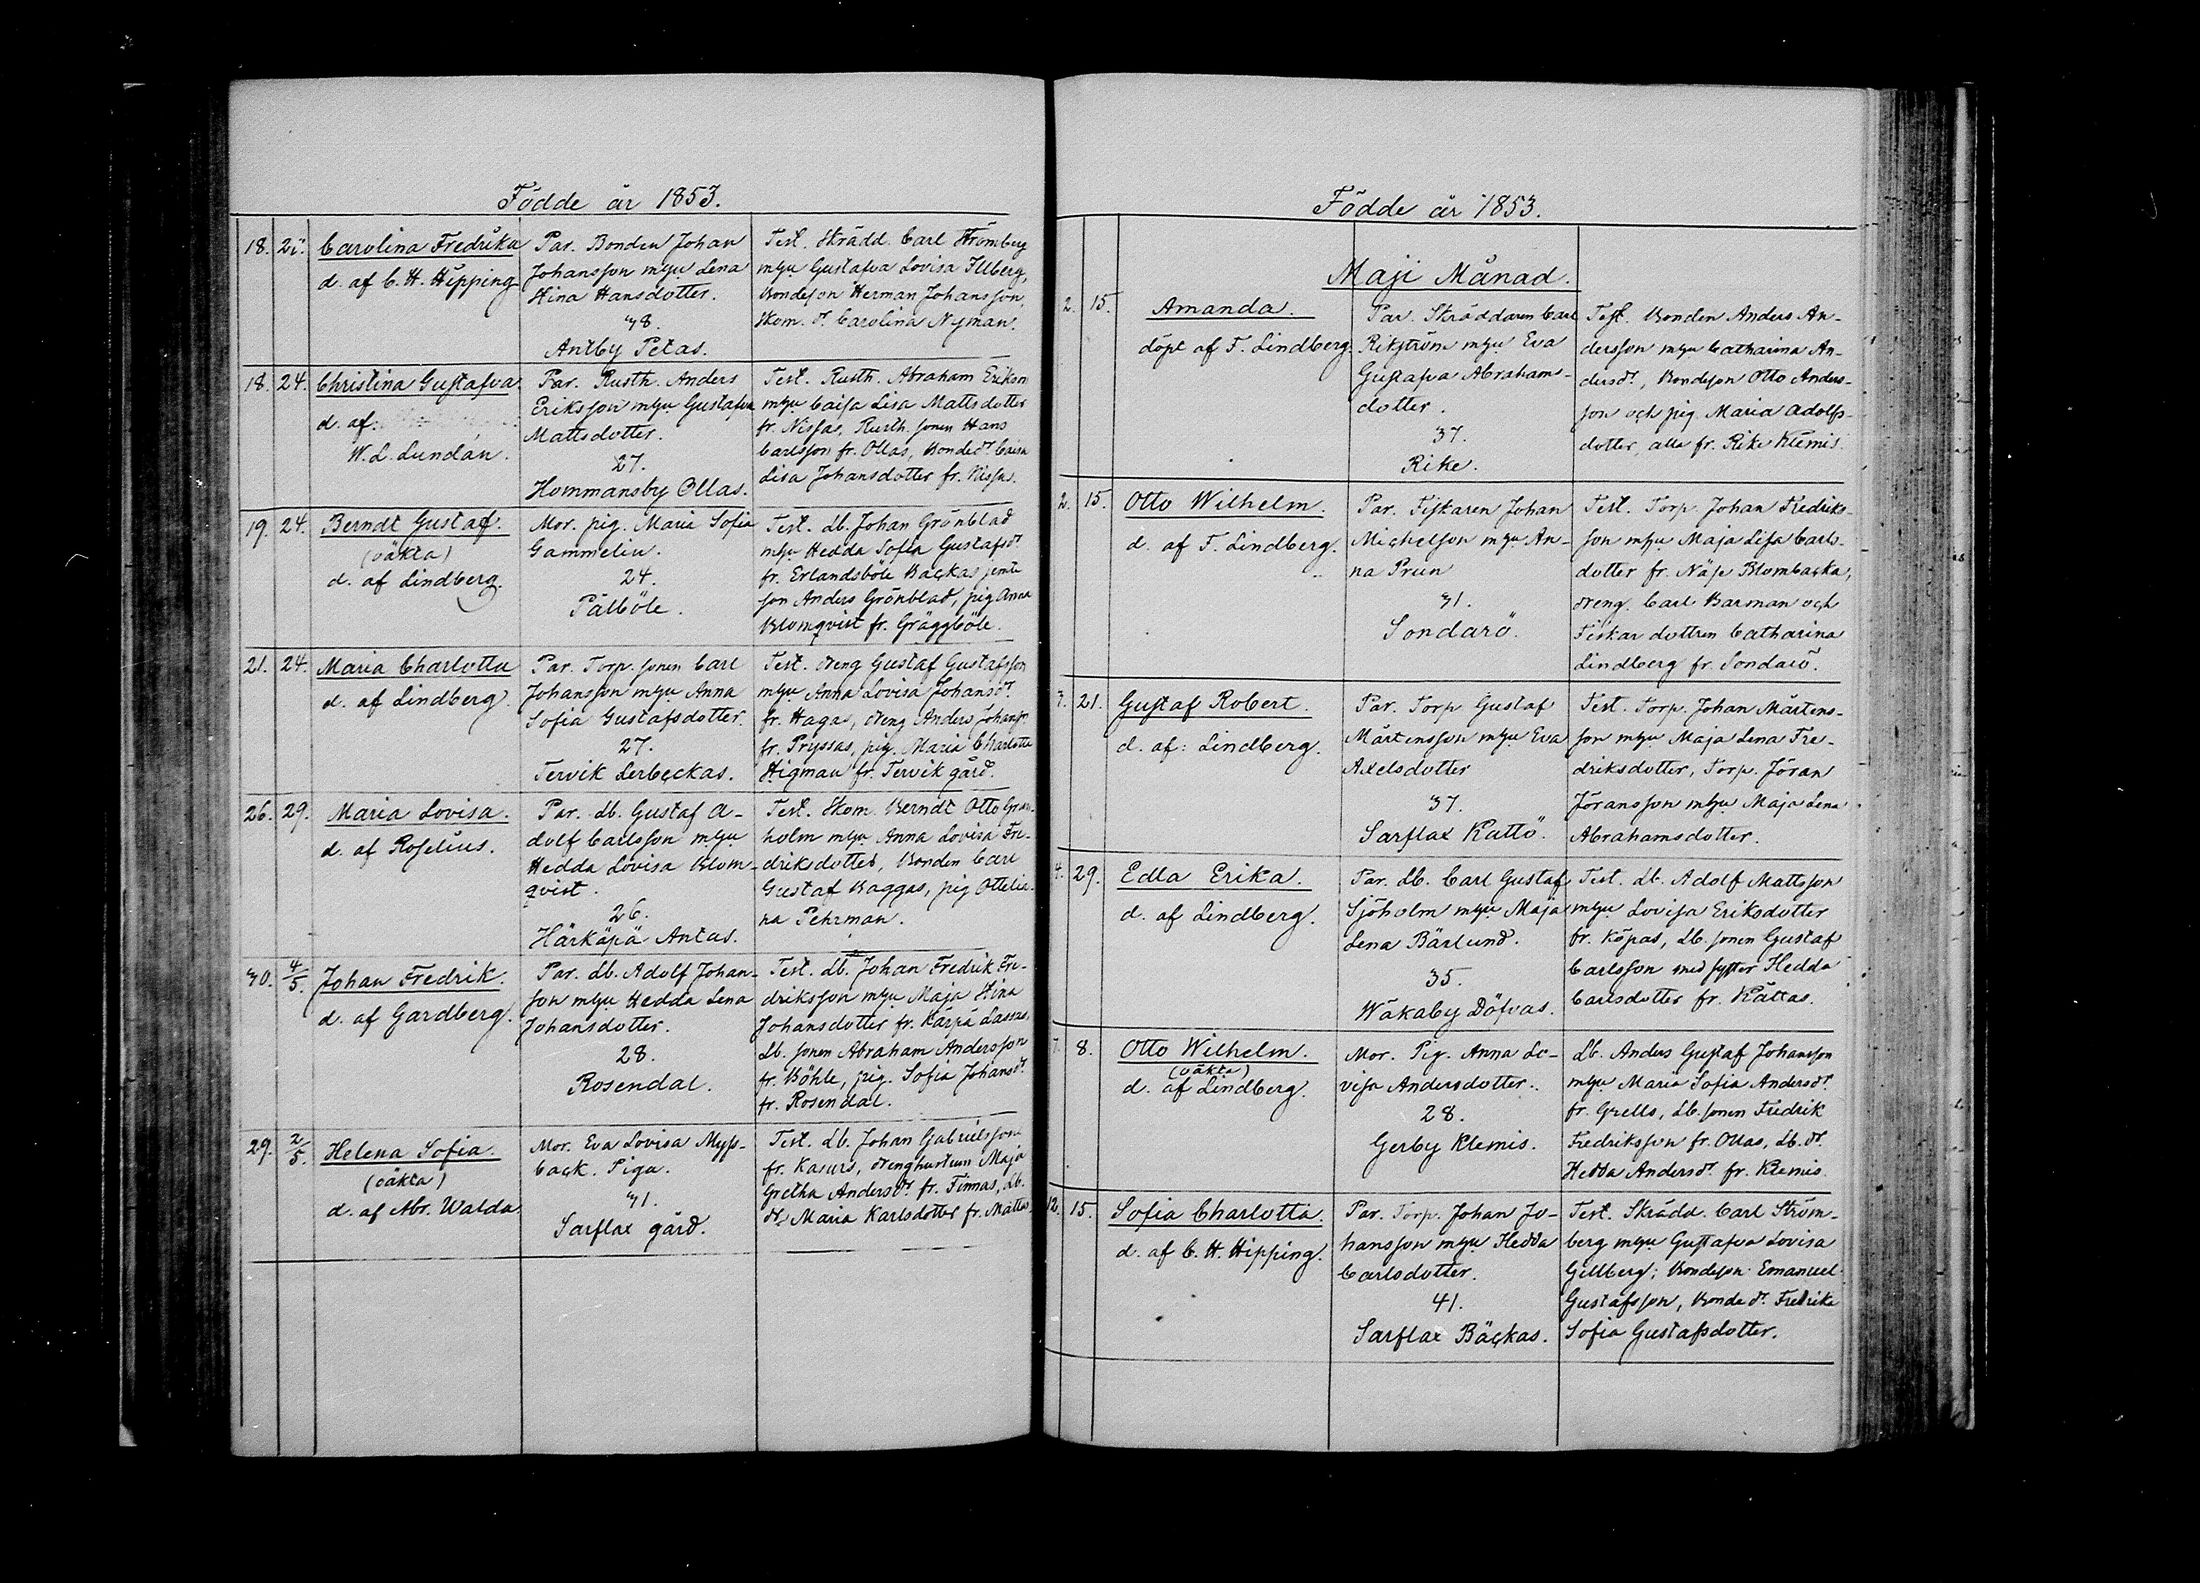 Födde år 1853.
18. 25. Carolina Fredrika
d. af C. H. Hipping
Par. Bonden Johan
Johansson m hu Lena
Stina Hansdotter.
38.
Antby Petas.
Test. Skrädd. Carl Strömberg
m hu Gustafva Lovisa Illberg,
Bondeson Herman Johansson,
Skom. dr. Carolina Nyman.
18. 24. Christina Gustafva
d. af
W. L. Lundán.
Par. Rusth. Anders
Eriksson m hu Gustafva
Mattsdotter.
27.
Hommansby Ollas.
Test. Rusth. Abraham Erikson
m hu Caisa Lisa Mattsdotter
fr. Nissas, Rusth. sonen Hans
Carlsson fr. Ollas, Bonde dr. Caisa
Lisa Johansdotter fr. Nissas.
19. 24. Berndt Gustaf.
(oäkta)
d. af Lindberg.
Mor. pig. Maria Sofia
Gammelin.
24.
Pälböle.
Test. Lb. Johan Grönblad
m hu Hedda Sofia Gustafsdr
fr. Erlandsböle Backas jemte
son Anders Grönblad, pig Anna
Blomqvist fr. Gräggböle.
21. 24. Maria Charlotta
d. af Lindberg.
Par. Torp. sonen Carl
Johansson m hu Anna
Sofia Gustafsdotter.
27.
Tervik Lerbeckas.
Test. dreng Gustaf Gustafsson
m hu Anna Lovisa Johansdr.
fr. Haga, dreng Anders Johanss.
fr. Pryssas, pig. Maria Charlotta
Higman fr. Tervik gård.
26. 29. Maria Lovisa.
d. af Roselius.
Par. Lb. Gustaf A-
dolf Carlsson m hu
Hedda Lovisa Blom-
qvist.
26.
Härkäpä Antas.
Test. Skom. Berndt Otto Gran-
holm m hu Anna Lovisa Fre-
driksdotter, Bonden Carl
Gustaf Baggas, pig Ottelia-
na Pehrman.
30. 4/5. Johan Fredrik.
d. af Gardberg.
Par. Lb. Adolf Johan-
son m hu Hedda Lena
Johansdotter.
28.
Rosendal.
Test. Lb. Johan Fredrik Fre-
driksson m hu Maja Stina
Johansdotter fr. Kärpä Lassas,
Lb. sonen Abraham Andersson
fr. Böhle, pig. Sofia Johansdr.
fr. Rosendal.
29. 2/5. Helena Sofia.
(oäkta)
d. af Abr. Walda
Mor. Eva Lovisa Myss-
back. Piga.
31.
Sarflax gård.
Test. Lb. Johan Gabrielsson
fr. Kasurs, drenghustrun Maja
Gretha Andersdr. fr. Finnas, Lb.
dr. Maria Karlsdotter fr. Mattas
Födde år 1853.
Maji Månad.
2. 15. Amanda.
döpt af F. Lindberg.
Par. Skräddaren Carl
Rikström m hu Eva
Gustafva Abrahams-
dotter.
37.
Rike.
Test. Bonden Anders An-
dersson m hu Catharina An-
dersdr., Bondeson Otto Anders-
son och pig Maria Adolfs-
dotter, alla fr. Rike Klemis.
2. 15. Otto Wilhelm.
d. af F. Lindberg.
Par. Fiskaren Johan
Michelson m hu An-
na Prun
31.
Sondarö.
Test. Torp. Johan Fredriks-
son m hu Maja Lisa Carls-
dotter fr. Näse Blombacka,
dreng. Carl Barman och
Fiskar dottren Catharina
Lindberg fr. Sondarö.
7. 21. Gustaf Robert.
d. af: Lindberg.
Par. Torp Gustaf
Mårtensson m hu Eva
Axelsdotter
37.
Sarflax Kattö.
Test. Torp. Johan Mårtens-
son m hu Maja Lena Fre-
driksdotter, Torp. Jöran
Jöransson m hu Maja Lena
Abrahamsdotter.
4. 29. Edla Erika.
d. af Lindberg.
Par. Lb. Carl Gustaf
Sjöholm m hu Maja
Lena Bärlund.
35.
Wäkaby Döfvas.
Test. Lb. Adolf Mattsson
m hu Lovisa Eriksdotter
fr. Köpas, Lb. sonen Gustaf
Carlsson med syster Hedda
Carlsdotter fr. Kättas.
7. 8. Otto Wilhelm.
(oäkta)
d. af Lindberg.
Mor. Pig. Anna Lo-
visa Andersdotter.
28.
Gerby Klemis.
Lb. Anders Gustaf Johansson
m hu Maria Sofia Andersdr.
fr. Grells, Lb. sonen Fredrik
Fredriksson fr. Ollas, Lb. dr.
Hedda Andersdr. fr. Klemis.
12. 15. Sofia Charlotta.
d. af C. H. Hipping.
Par. Torp. Johan Jo-
hansson m hu Hedda
Carlsdotter.
41.
Sarflax Bäckas.
Test. Skrädd. Carl Ström-
berg m hu Gustafva Lovisa
Gillberg; Bondeson Emanuel
Gustafsson, Bonde dr. Fredrika
Sofia Gustafsdotter.